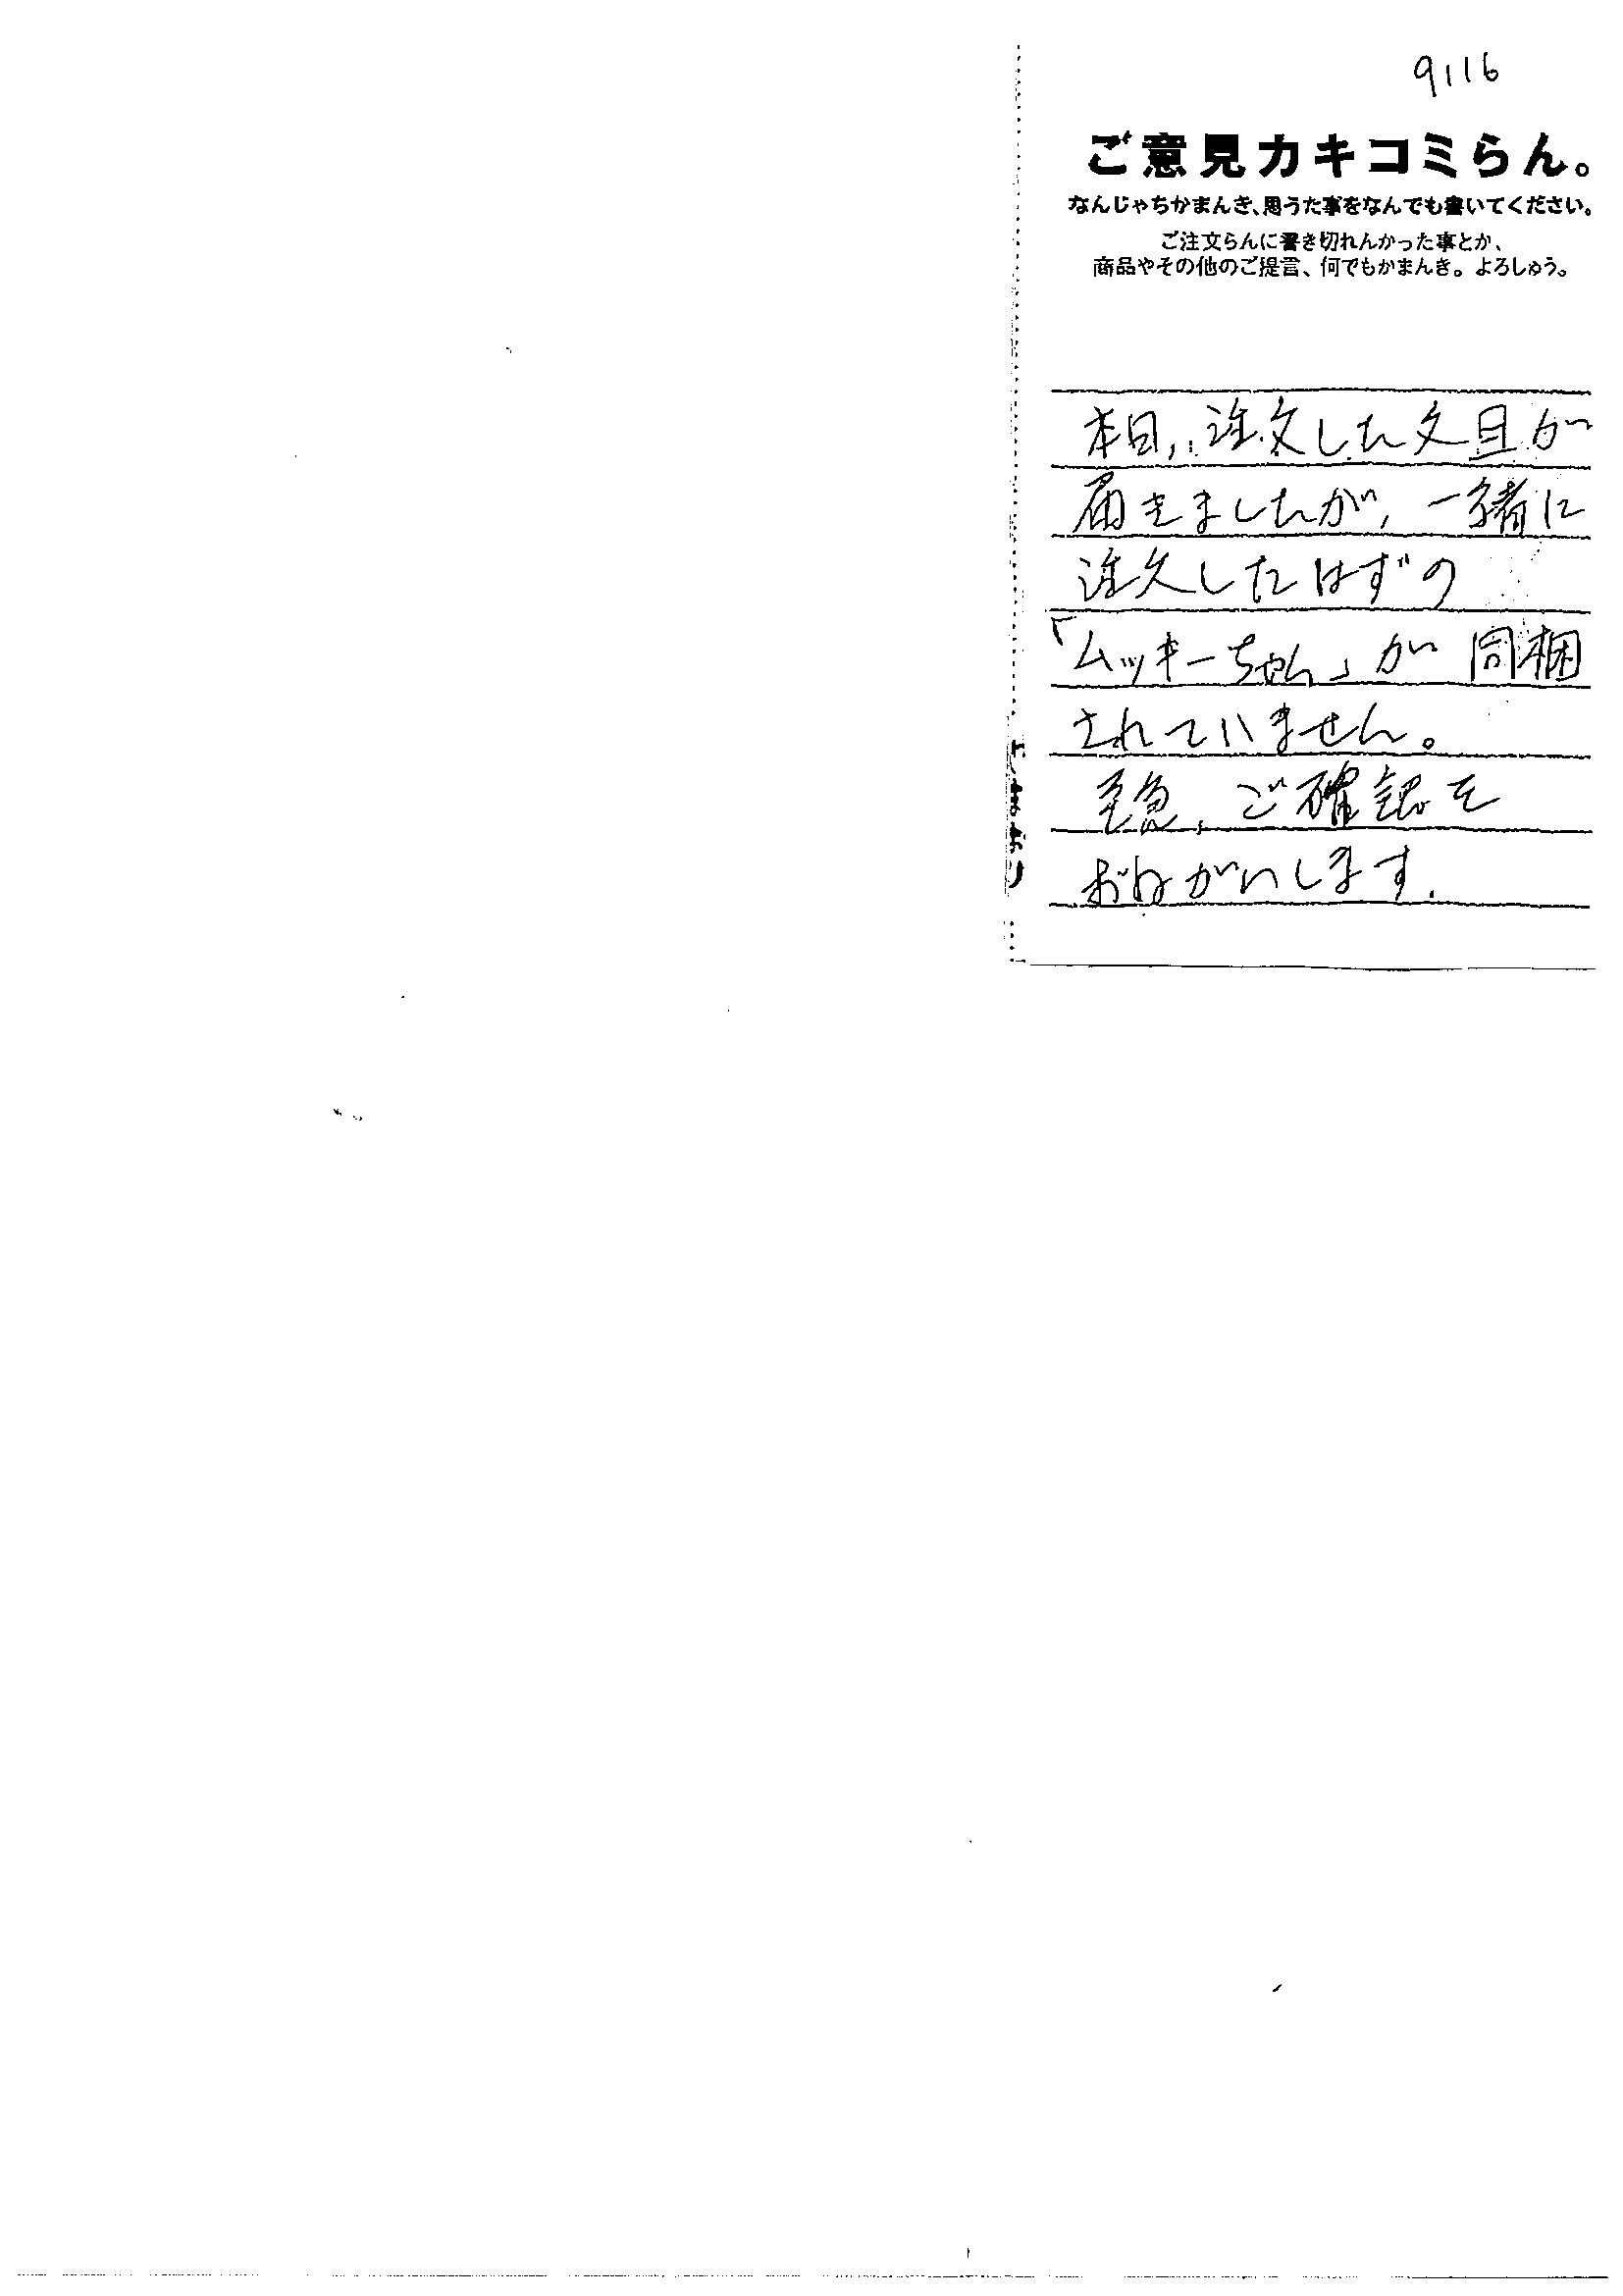 9116
ご意見カキコミらん。
なんじゃちかまんき、思うた事をなんでも書いてください。
ご注文らんに書き切れんかった事とか、
商品やその他のご提言、何でもかまんき。よろしゅう。
本日、注文した文旦が
届きましたが、一緒に
注文したはずの
「ムッキーちゃん」が同梱
されていません。
至急、ご確認を
おねがいします.